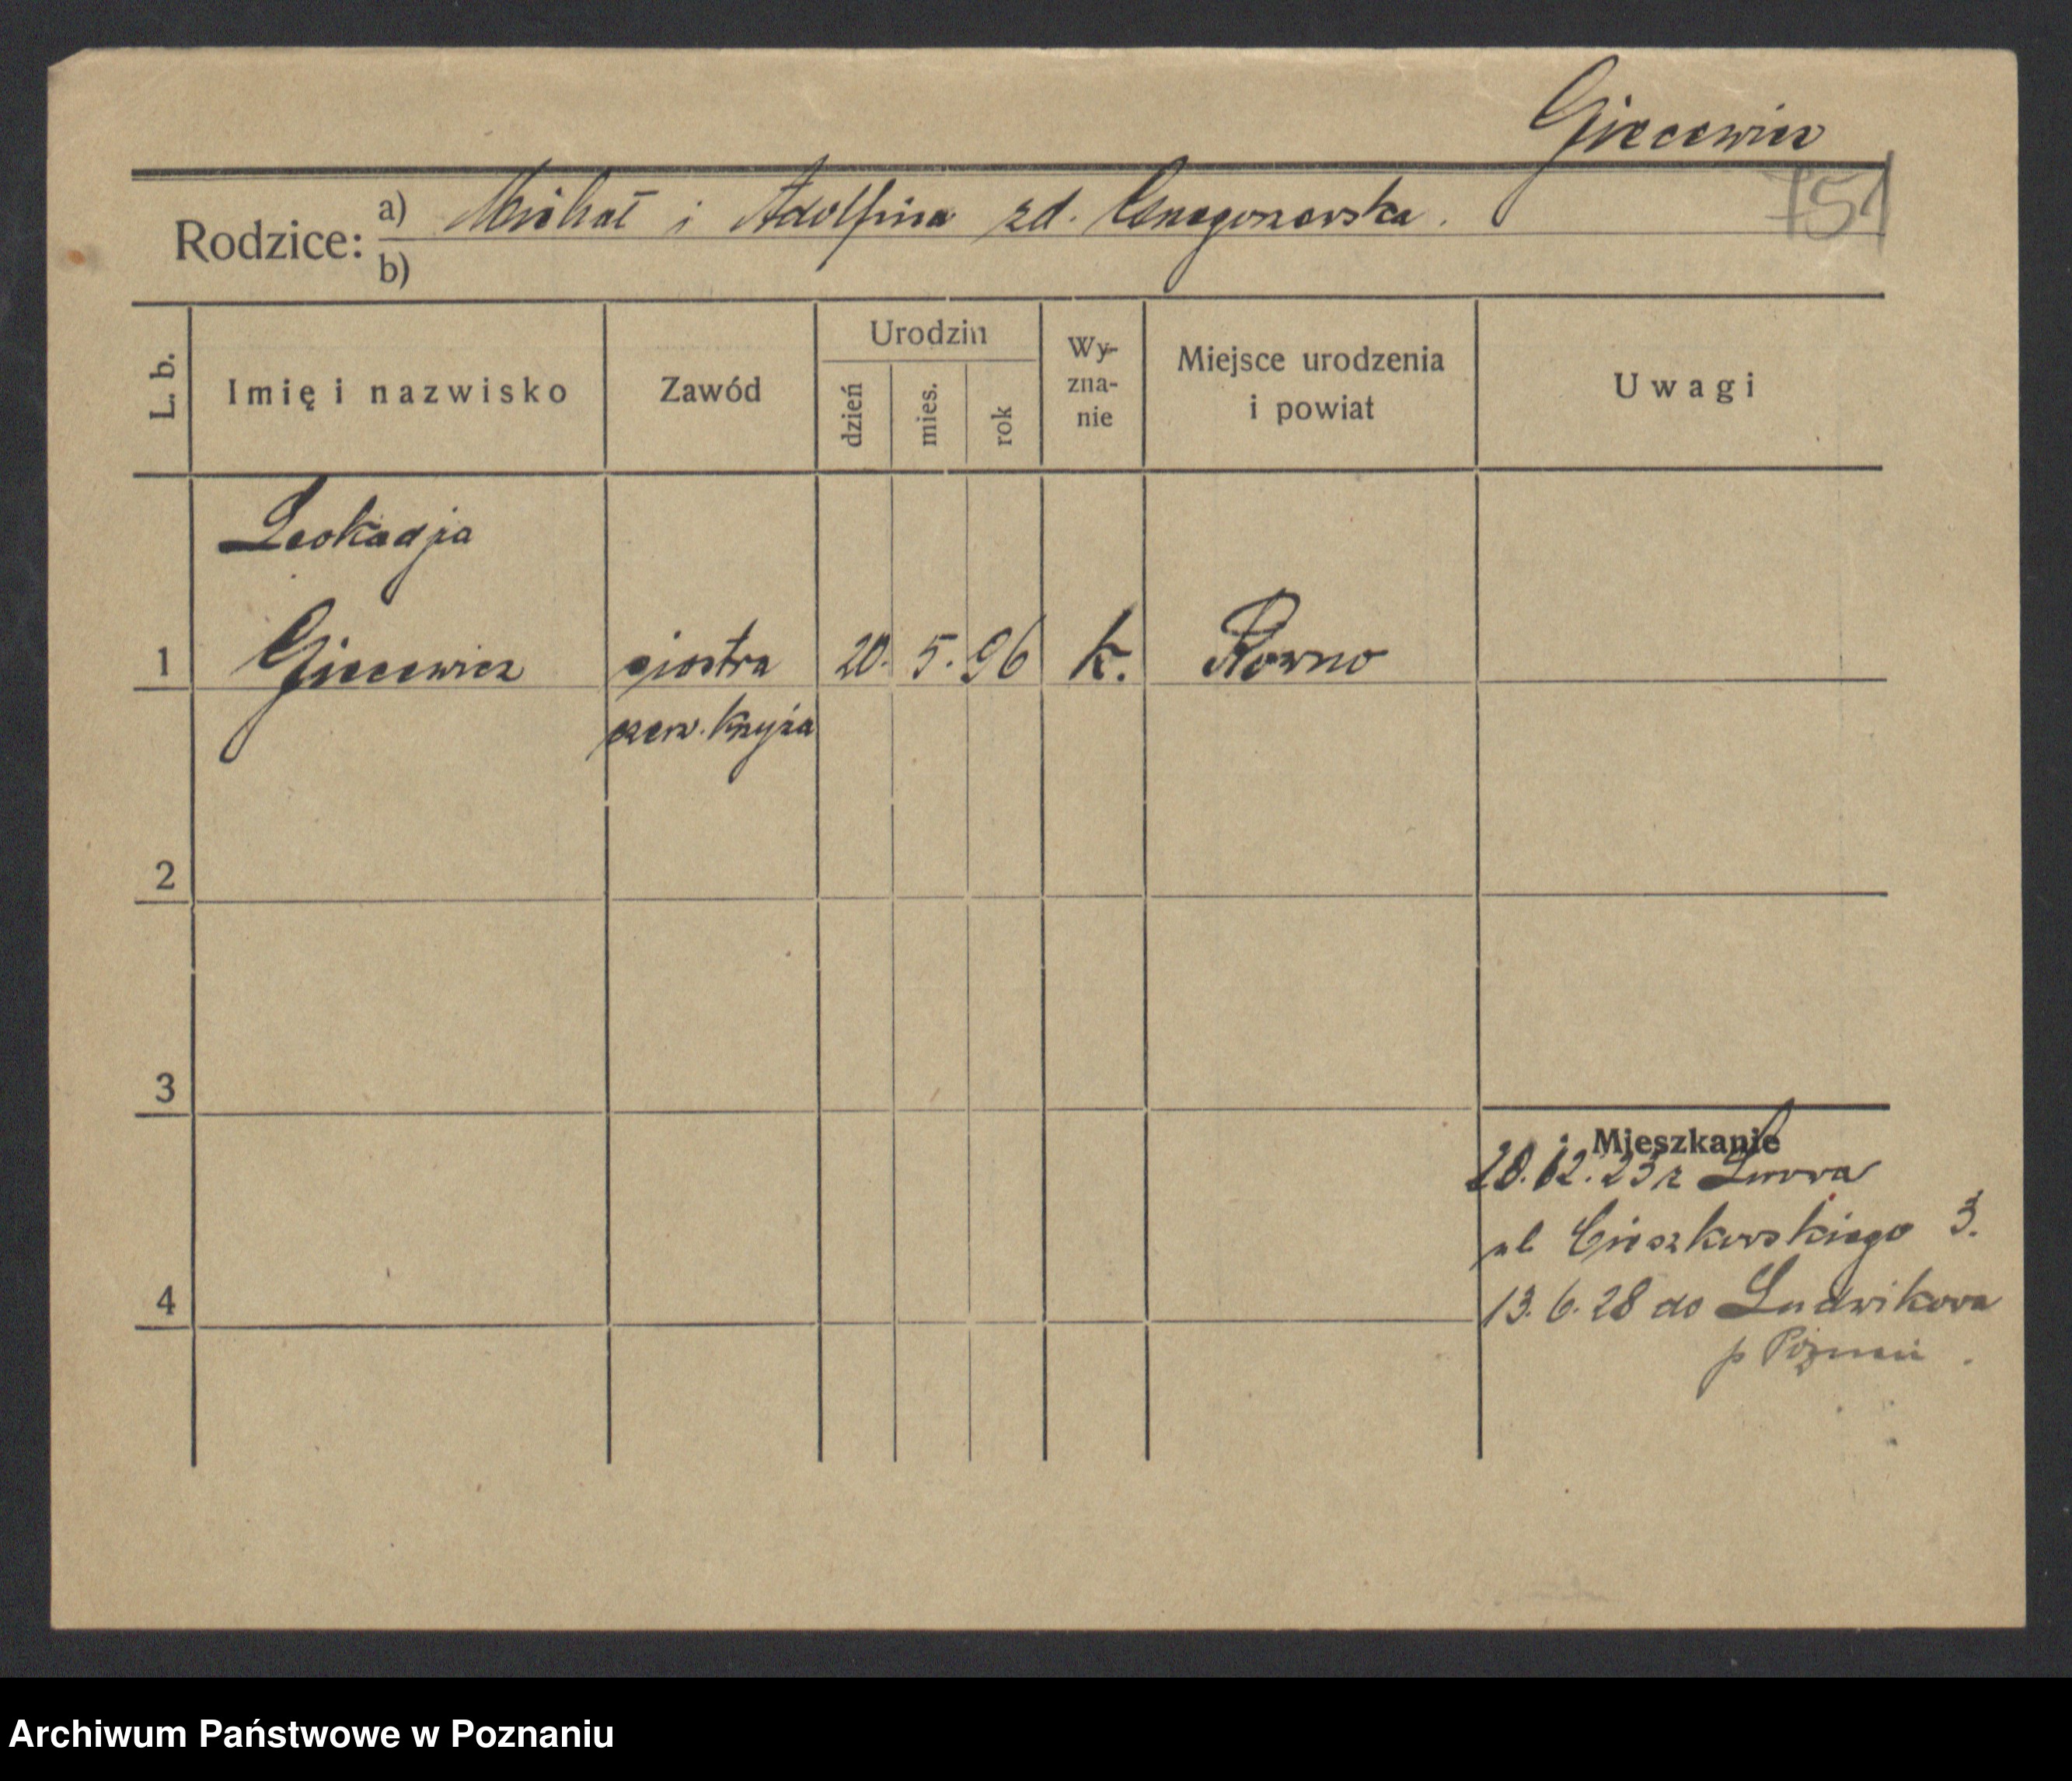 Giecewicz
751
Rodzice: a) Michał i Adolfina zd.
b)
L. b. Imię i nazwisko Zawód Urodzin dzień mies. rok Wy-zna-nie Miejsce urodzenia i powiat Uwagi
Leokadja
1 Giecewicz siostra 20. 5. 96 k. Rowno
czerw. Krzyża
2
3
Mieszkanie
20.12.23 z Lwowa
ul Cieszkowskiego 3.
4 13.6.28 do Ludwikowa
p Poznań.
Archiwum Państwowe w Poznaniu